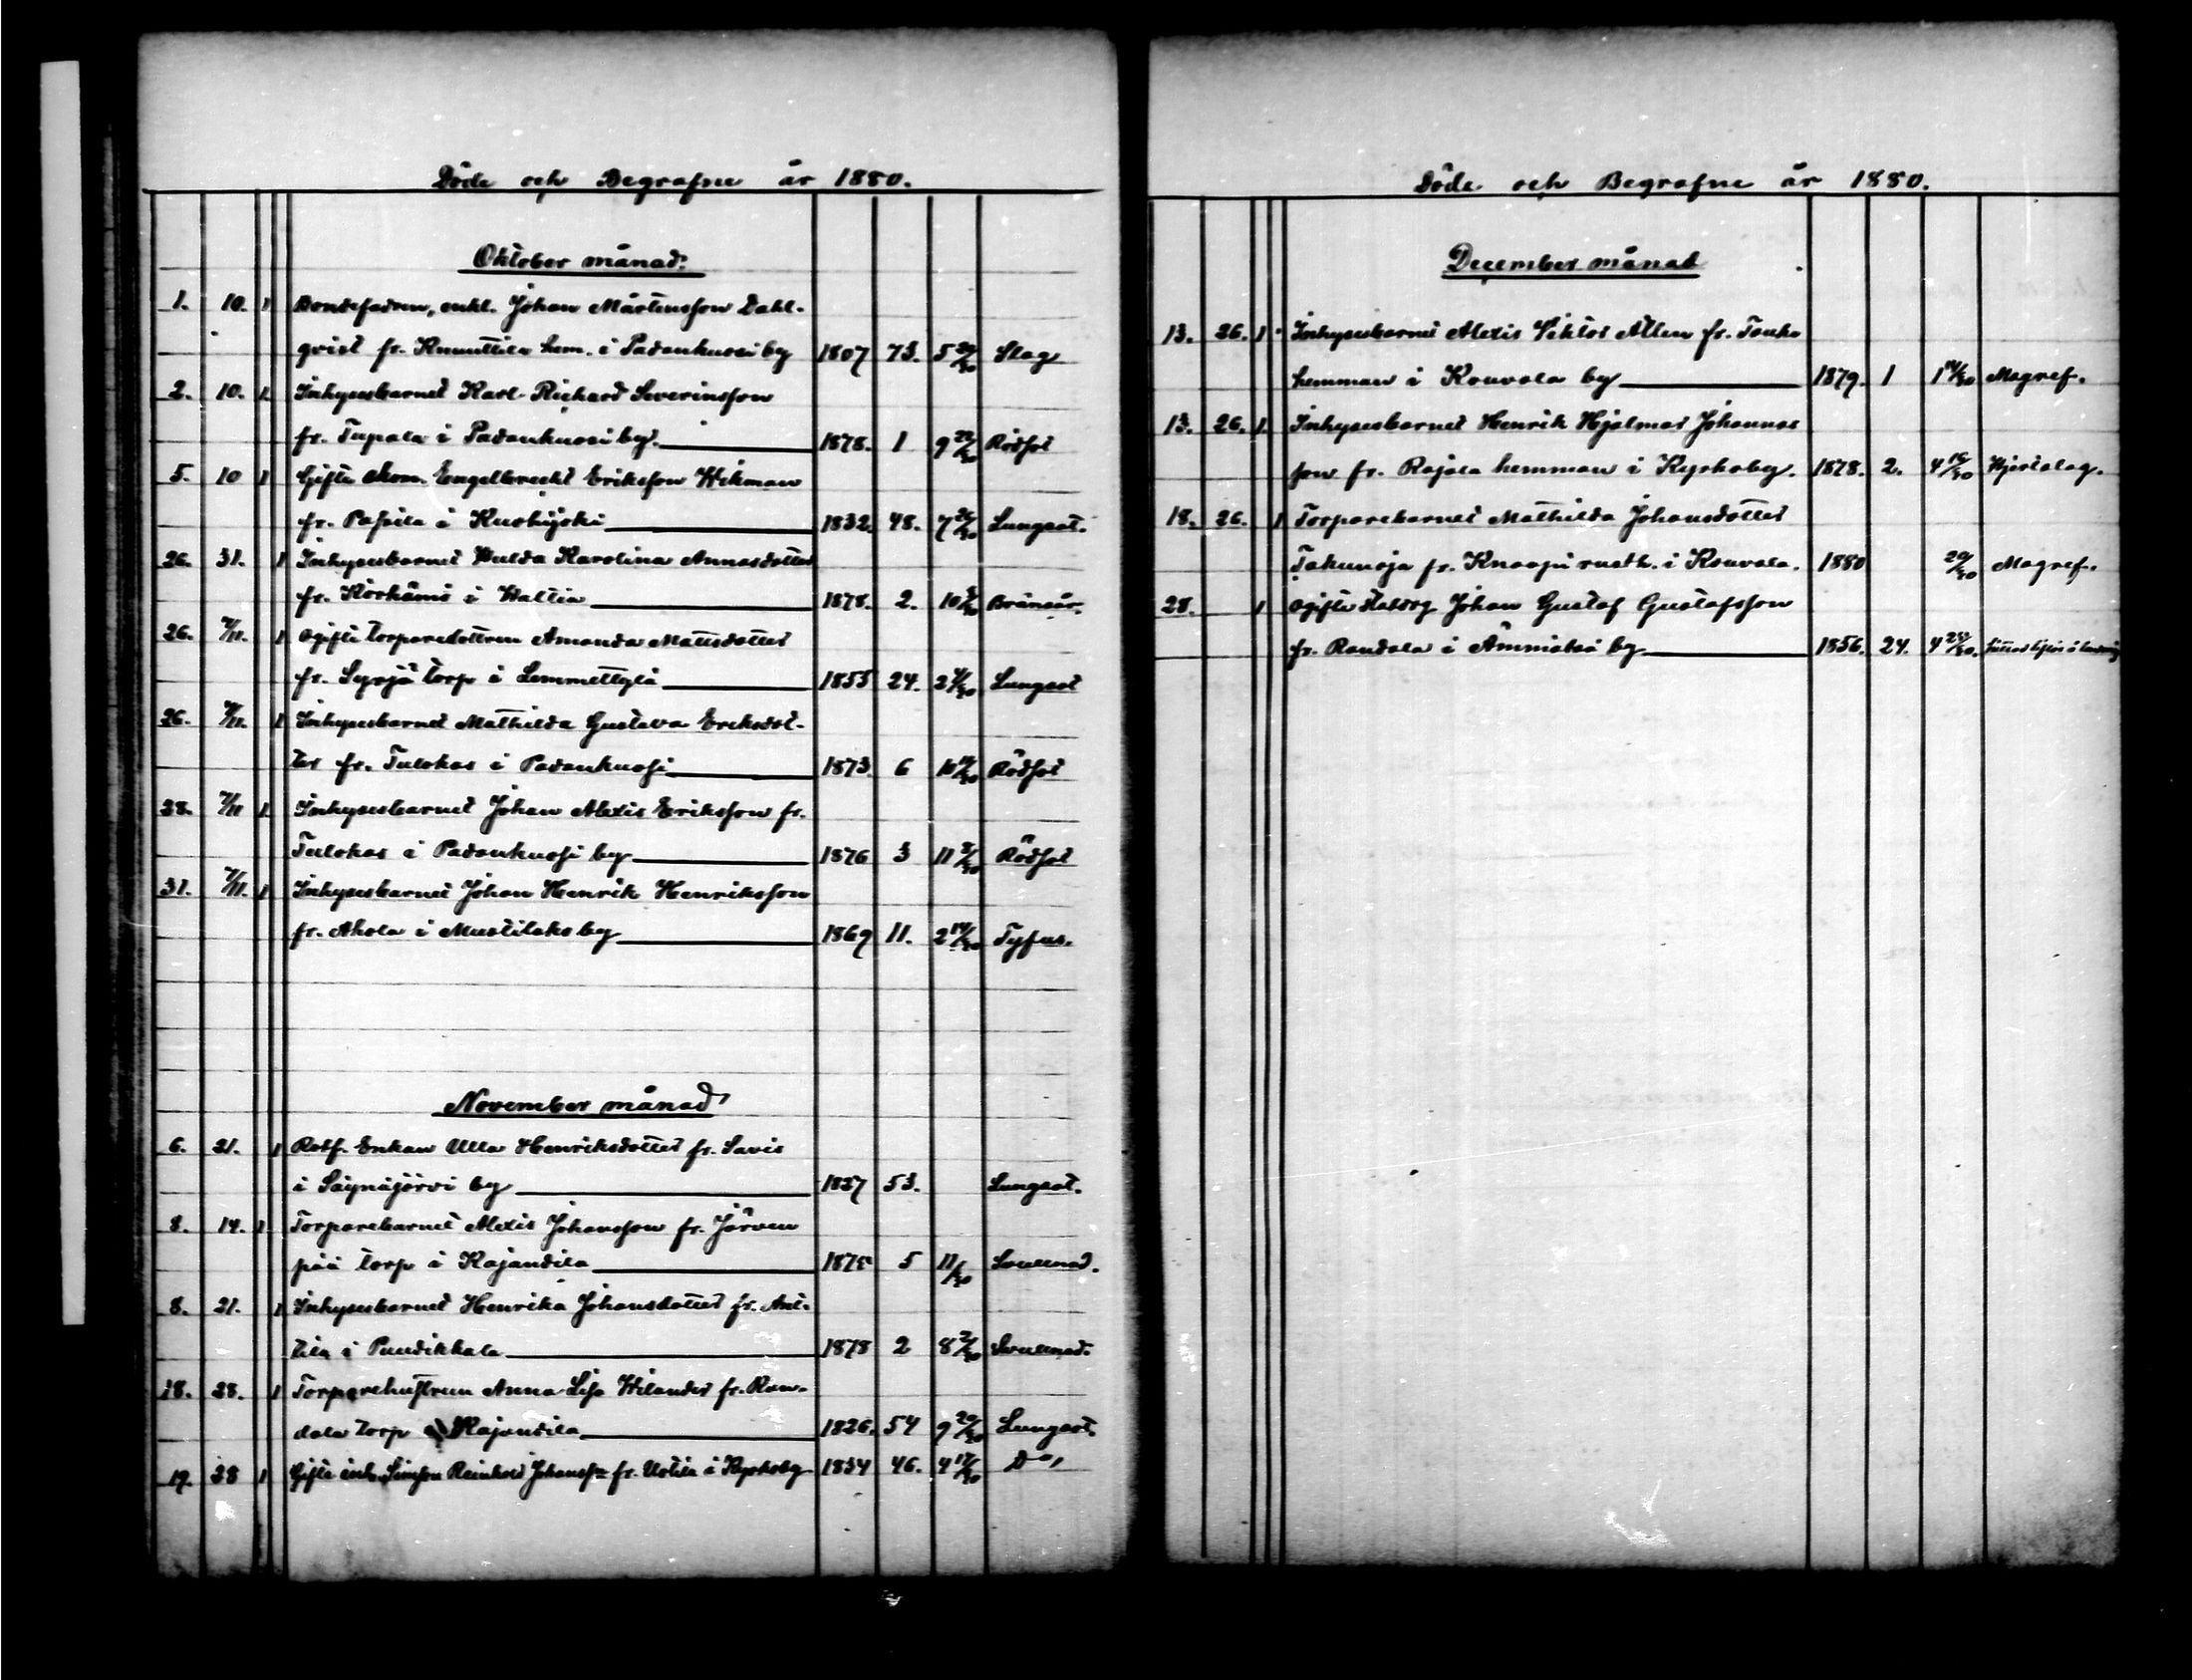 Döde och Begrafne år 1880.
Oktober månad.
1. 10. 1 Bondefadren, enkl. Johan Mårtensson Dahl-
qvist fr. Knuuttila hem. i Padankoski by 1807 73. 5 30 Slag
2. 10. 1. Inhysesbarnet Karl Richard Severinsson
fr. Tupala i by. 1878. 1 9 /30 Rödsot
5. 10 1 Gifte Engelbrecht Eriksson Wikman
fr. Passila i 1832. 48. 7 26/30 Lungsot.
26. 31. 1 Inhysesbarnet Hulda Karolina Annasdotter
fr. i Haltia 1878. 2. 10 /30
26. 7/11. 1 Ogifta torparedottren Amanda Mattsdotter
fr. Syrjä torp i Lemmettylä 1855 24. 2 /30 Lungsot
26. 7/11. 1 Inhysesbarnet Mathilda Gustava Eriksdot-
ter fr. Tulokas i 1873 6 10 /30 Rödsot
28. 7/11 1. Inhysesbarnet Johan Alexis Eriksson fr.
Tulokas i by 1876 3 11 /30 Rödsot
31. 7/11. 1 Inhysesbarnet Johan Henrik Henriksson
fr. Ahola i by 1869 11. 2 14/30 Tyfus.
November månad
6. 21. 1 Rotf. Enkan Ulla Henriksdotter fr. Savis
i Säynäjärvi by 1827 53. Lungsot.
8. 14. 1 Torparebarnet Alexis Johansson fr. Järven
pää torp i Kajandila 1875 5 11/30
8. 21. 1 Inhysesbarnet Henrika Johansdotter fr. Ant-
tila i Pundikkala 1878 2 8 2/30
18. 28. 1 Torparehustrun Anna Lisa Wilander fr. Ran-
dala torp Kajandila 1826. 54 9 20/30 Lungsot.
19. 28 1 Gifte inh. Simson Reinhold Johanss:n fr. Uotila i Kyrkoby 1834 46. 4 17/30 D:o,
Döde och Begrafne år 1880.
December månad
13. 26. 1 Inhysesbarnet Alexis Viktor Allen fr.
hemman i Kouvola by 1879. 1 1 14/30 Magref.
13. 26. 1. Inhysesbarnet Henrik Hjalmar Johannes
son fr. Rajala hemman i Kyrkoby. 1878. 2. 4 15/30
18. 26. 1 Torparebarnet Mathilda Johansdotter
fr. Knaapi rusth. i Kouvola. 1880 20/30 Magref.
28. 1 Ogifte Johan Gustaf Gustafsson
fr. Randala i by 1856. 24. 4 28/30.